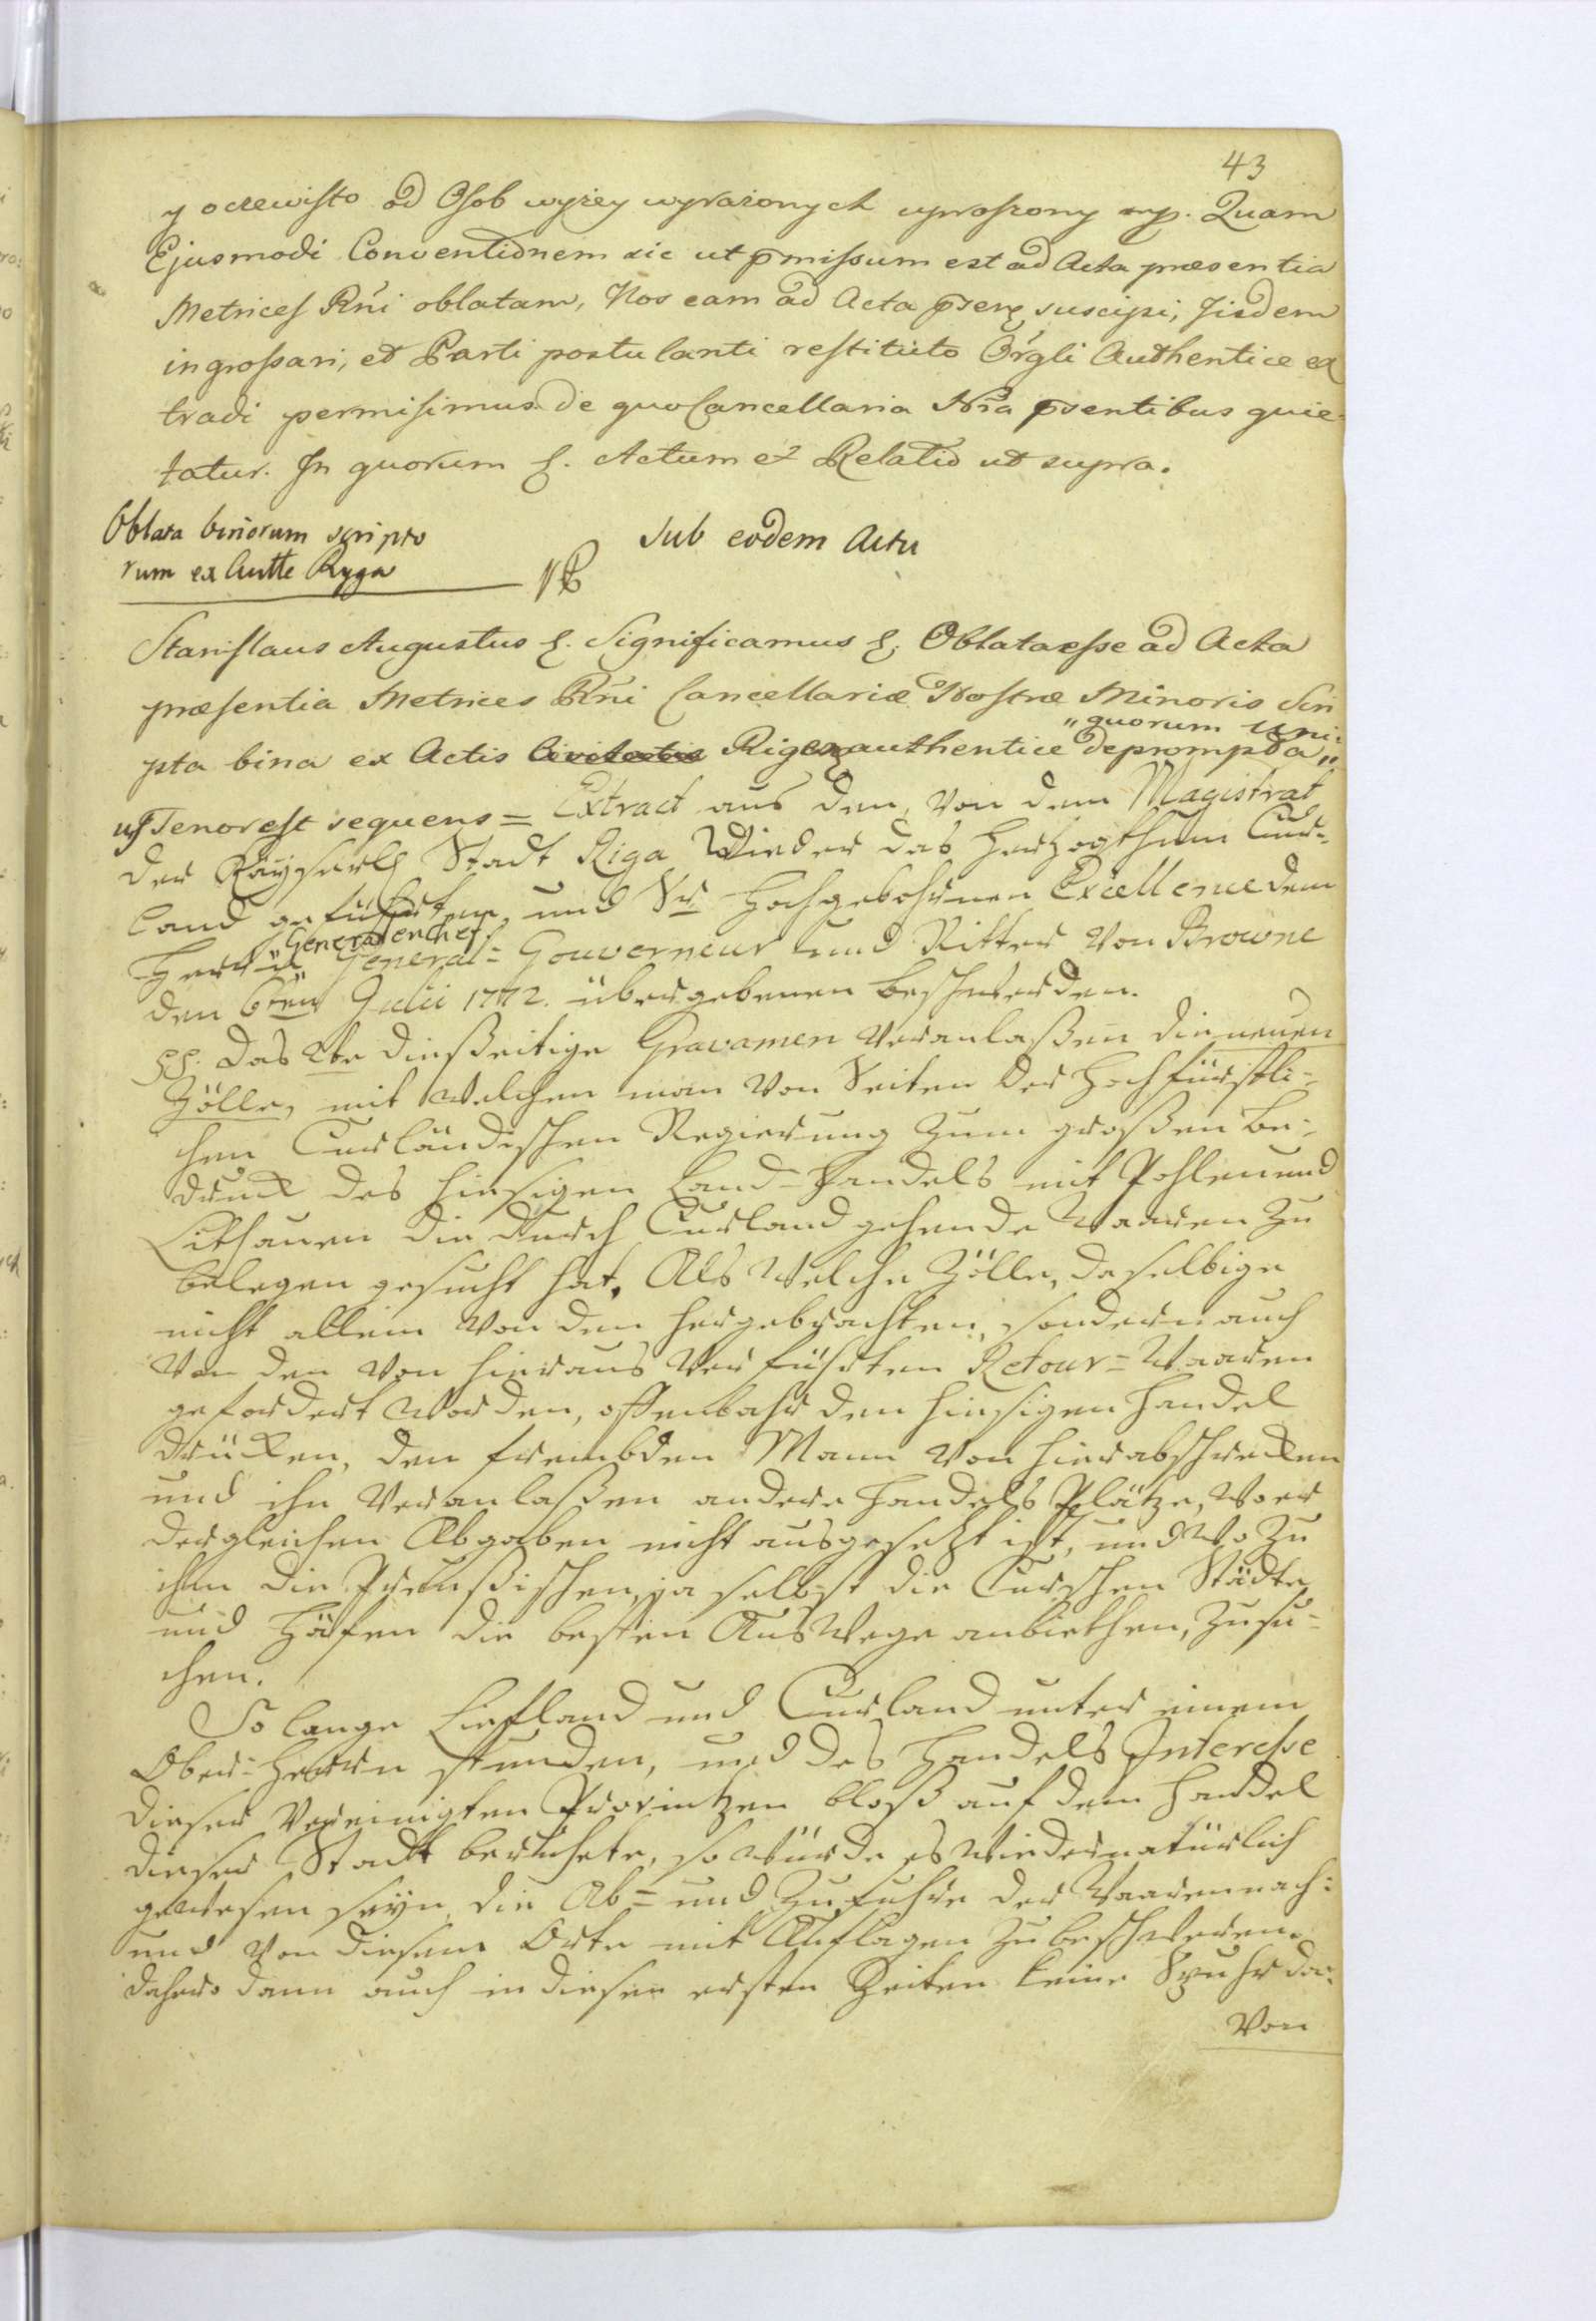 43
y oczewisto od Osob wyżey wyrażonych uproszony mp. Quam
Ejusmodi Conventionem sic ut pmissum est ad Acta præsentia
Metrices Rni oblatam, Nos eam ad Acta psen suscipi, Iisdem
ingrossari, et Parti postulanti restituto Orgli Authentice ex
tradi permisimus de quo Cancellaria Nra psentibus quie-
tatur. In quorum &. Actum et Relatio ut supra.
Oblata binorum scripto
rum ex Autte Ryga
Sub eodem Actu
Stanislaus Augustus &. Significamus &. Oblata esse ad Acta
præsentia Metrices Rni Cancellariæ Nostræ Minoris Scri
pta bina ex Actis Civitatis Rigen authentice deprompta „
„quorum Uni-
us Tenor est sequens = Extract aus den, Von dem Magistrat
der Kayserl Stadt Riga Wieder das Hertzogthum Cur-
land geführten, und Sr Hochgebohrnen Excellence dem
„General en Chef
Herrn „ General-Gouverneur und Ritter Von Browne
den 6ten Julii 1772. übergebenen Beschwerden.
pp. Das 2te dießeitige Gravamen Veranlaßen die neuen
Zölle, mit welchen man Von Seiten der Hochfürstli-
chen Curländischen Regierung zum großen Be-
druck des hiesigen Land-Handels mit Pohlen und
Litthauen die durch Curland gehende Waaren zu
belegen gesucht hat. Als Welche Zölle, da selbige
nicht allein Von den hergebrachten, sondern auch
Von den Von hieraus Verführten Retour-Waaren
gefordert Worden, offenbahr den hiesigen Handel
drücken, den frembden Mann Von hier abschrecken
und ihn Veranlaßen andere Handels Plätze, Wo er
dergleichen Abgaben nicht ausgesetzt ist, und Wo zu
ihm die Preußischen, ja selbst die Curschen Städte
und Häfen die besten Aus Wege anbiethen, zu su-
chen.
So lange Liefland und Curland unter einem
Ober-Herrn stunden, und des Handels Interesse
dieser Vereinigten Provintzen bloß auf dem Handel
dieser Stadt beruhete, so Würde es Wieder natürlich
gewesen seyn, die Ab- und Zufuhre der Waaren nach-
und Von diesem Orte mit Auflagen zu beschweren.
dahero dann auch in diesen ersten Zeiten keine Spuhr da-
Von